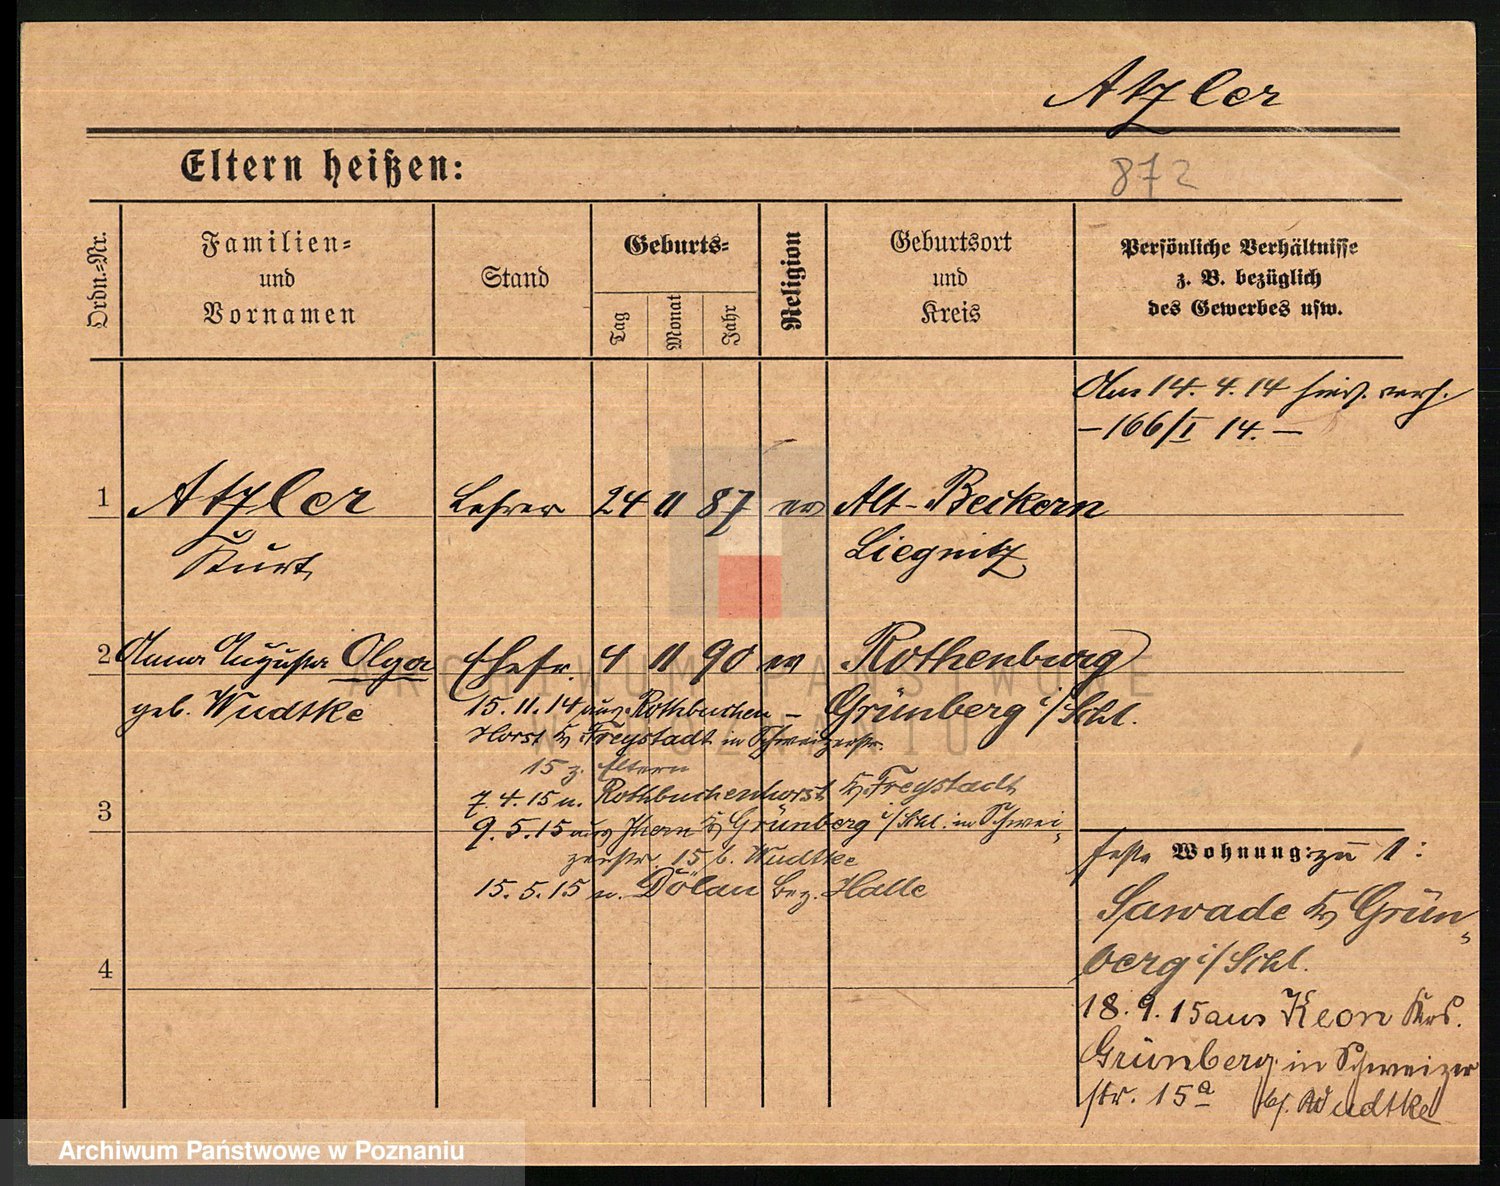 Atzler
Eltern heißen:
872
Ordn.-Nr.
Familien-
und
Vornamen
Stand
Geburts-
Tag
Monat
Jahr
Religion
Geburtsort
und
Kreis
Persönliche Verhältnisse
z. B. bezüglich
des Gewerbes usw.
Am 14. 4. 14 hies. verh.
-166/I 14.-
1 Atzler Lehrer 24 11 87 ev Alt-Beckern
Kurt Liegnitz
2 Anna Augusta Olga Ehefr. 4 11 90 ev Rothenburg
geb. Wudtke Grünberg i/Schl.
15. 11. 14 aus Rothbuchen-
Horst Kr Freystadt in Schweizerstr.
15 z. Eltern
7. 4. 15 n. Rothbuchenhorst Kr Freystadt
3
9. 5. 15 aus Kr Grünberg i/Schl. in Schwei-
zerstr. 15 b. Wudtke
15. 5. 15 n. Dölau Bez. Halle
4
feste Wohnung: zu 1:
Sawade Kr Grün-
berg i/Schl.
18. 9. 15 aus Keon Krs.
Grünberg in Schweizer
str. 15a b/ Wudtke
ARCHIWUM PAŃSTWOWE
W POZNANIU
Archiwum Państwowe w Poznaniu